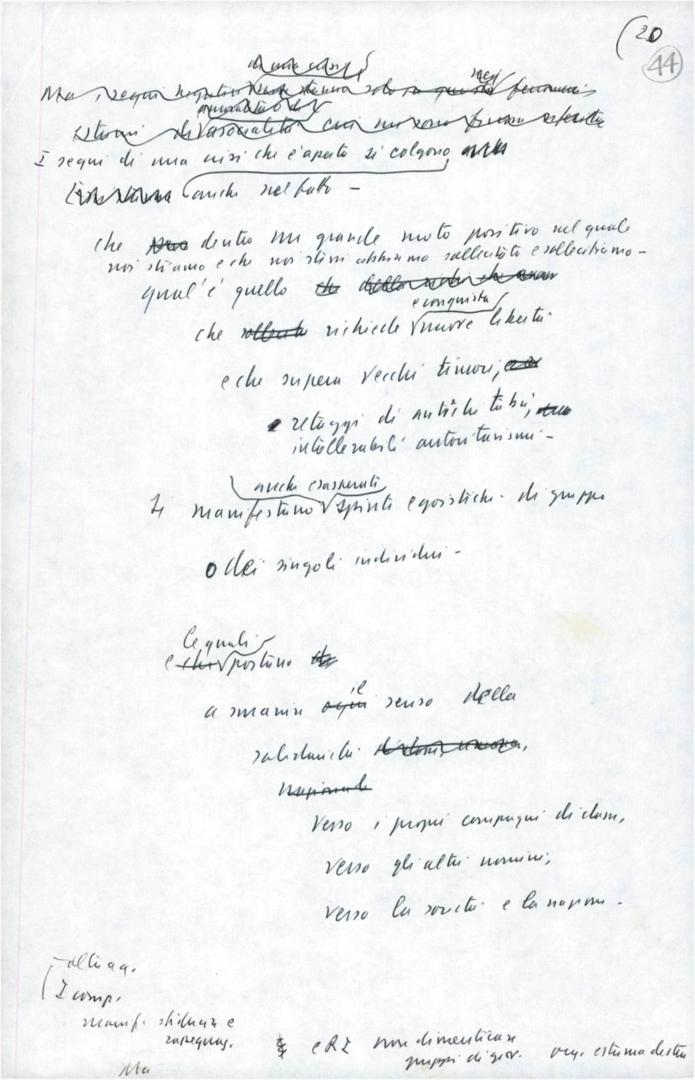 (20
44
Ma i segni negativi solo in questi negli fenomeni
estremi di asocialità cui mi sono
I segni di una crisi che è aperta si colgono
anche nel fatto -
che dentro un grande moto positivo nel quale
noi stiamo e che noi stessi abbiamo sollecitato e sollecitiamo -
qual'è quello
e conquista
che richiede nuove libertà
e che supera vecchi timori,
retaggi di antichi tabù,
intollerabili autoritarismi -
anche esasperate
si manifestano spinte egoistiche - di gruppo
o dei singoli individui -
le quali
e che portano
a smarrire il senso della
solidarietà
nazionale
verso i propri compagni di classe,
verso gli altri uomini,
verso la società e la nazione -
I comp.
manif. sfiducia e
rassegnaz.
Ma
e RI non dimenticare
gruppi di giov. org. estrema destra